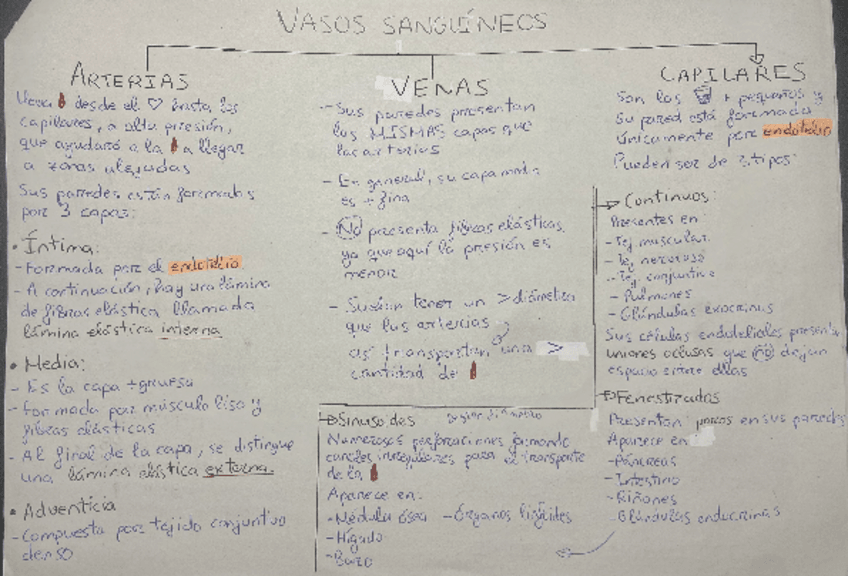 VASOS SANGUÍNEOS
ARTERIAS
lleva desde el hasta los
capilares, a alta presión,
que ayudará a la a llegar
a zonas alejadas
Sus paredes están formadas
por 3 capas:
• Íntima:
- Formada por el endotelio
- A continuación, hay una lámina
de fibras elástica llamada
lámina elástica interna
• Media:
- Es la capa + gruesa
- Formada por músculo liso y
fibras elásticas
- Al final de la capa, se distingue
una lámina elástica externa.
• Adventicia
- Compuesta por tejido conjuntivo
denso
VENAS
- Sus paredes presentan
las MISMAS capas que
las arterias
- En general, su capa media
es + fina
- No presenta fibras elásticas,
ya que aquí la presión es
menor
- Suelen tener un > diámetro
que las arterias
así transportan una >
cantidad de
CAPILARES
Son los + pequeños y
su pared está formada
únicamente por endotelio
Pueden ser de 3 tipos:
→ Continuos:
Presentes en:
- Tej muscular
- Tej nervioso
- Tej conjuntivo
- Pulmones
- Glándulas exocrinas
Sus células endoteliales presentan
uniones oclusas que no dejan
espacio entre ellas
→ Fenestrados
Presentan poros en sus paredes
Aparece en
- Páncreas
- Intestino
- Riñones
- Glándulas endocrinas
→ Sinusoides
Numerosas perforaciones formando
canales irregulares para el transporte
de la
Aparece en:
- Médula ósea - Órganos linfoides
- Hígado
- Bazo